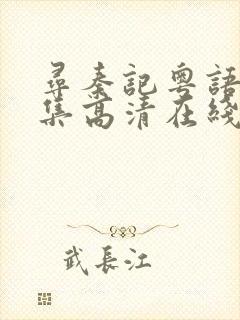 尋秦記粵語
集高清在綫
武長江